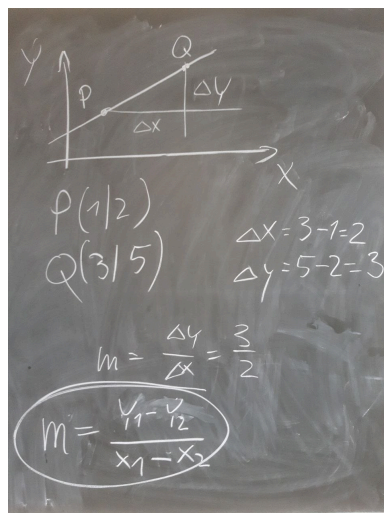 y
Q
P
Δy
Δx
x
P(1|2)
Q(3|5)
Δx=3-1=2
Δy=5-2=3
m = Δy/Δx = 3/2
m = y1-y2/x1-x2